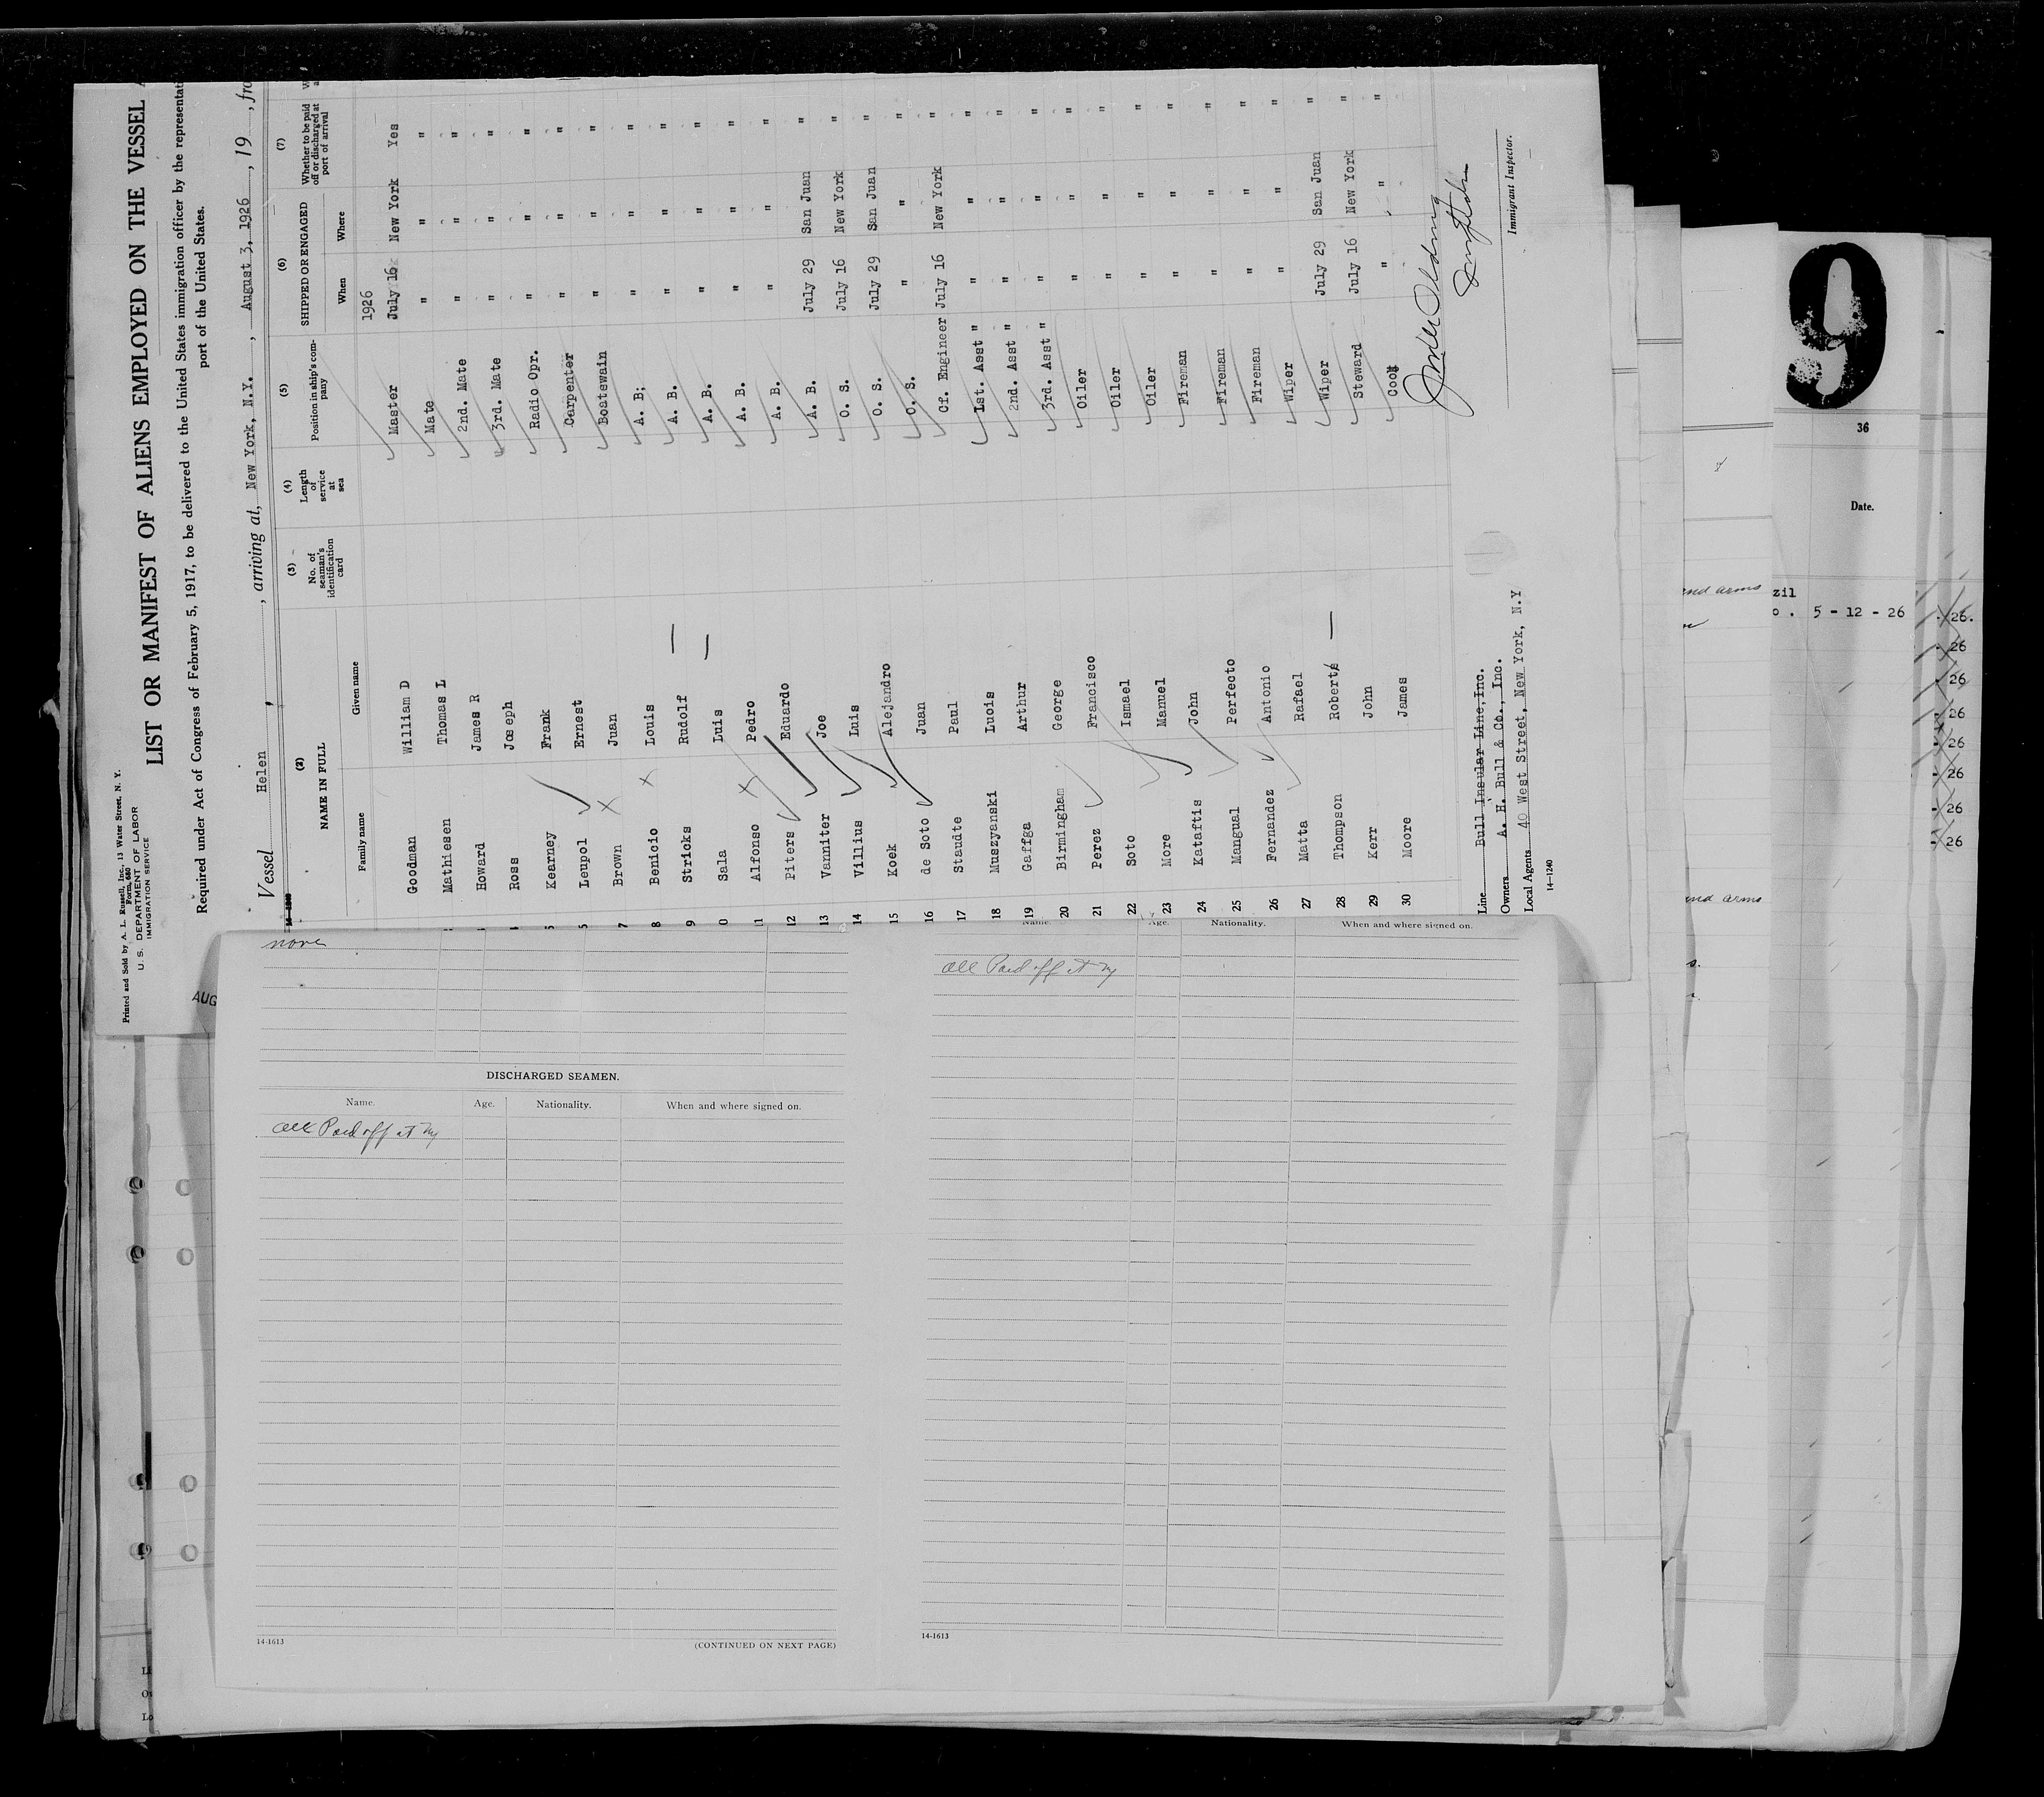 Printed and Sold by A. L. Russell, Inc., 13 Water Street, N. Y.
Form 680
U. S. DEPARTMENT OF LABOR
IMMIGRATION SERVICE
LIST OR MANIFEST OF ALIENS EMPLOYED ON THE VESSEL
Required under Act of Congress of February 5, 1917, to be delivered to the United States immigration officer by the representat
port of the United States.
Vessel Helen, arriving at, New York, N.Y., August 3, 1926, 19, fro
(2) (3) (4) (5) (6) (7)
NAME IN FULL No. of seaman's identification card Length of service at sea Position in ship's company SHIPPED OR ENGAGED Whether to be paid off or discharged at port of arrival
Family name Given name When Where
1926
Goodman William D Master July 16 New York Yes
Mathiesen Thomas L Mate " " "
Howard James R 2nd. Mate " " "
Ross Joseph 3rd. Mate " " "
5 Kearney Frank Radio Opr. " " "
Leupol Ernest Carpenter " " "
7 Brown Juan Boatswain " " "
8 Benicio Louis A. B; " " "
9 Stricks Rudolf A. B. " " "
0 Sala Luis A. B. " " "
11 Alfonso Pedro A. B. " " "
12 Piters Eduardo A. B. " " "
13 Vanniter Joe A. B. July 29 San Juan "
14 Villius Luis O. S. July 16 New York "
15 Koek Alejandro O. S. July 29 San Juan "
16 de Soto Juan O. S. " " "
17 Staudte Paul Cf. Engineer July 16 New York "
18 Muszyanski Luois 1st. Asst " " " "
19 Gaffga Arthur 2nd. Asst " " " "
20 Birmingham George 3rd. Asst " " " "
21 Perez Francisco Oiler " " "
22 Soto Ismael Oiler " " "
23 More Manuel Oiler " " "
24 Kataftis John Fireman " " "
25 Mangual Perfecto Fireman " " "
26 Fernandez Antonio Fireman " " "
27 Matta Rafael Wiper " " "
28 Thompson Robert Wiper July 29 San Juan "
29 Kerr John Steward July 16 New York "
30 Moore James Cook " " "
Line Bull Insular Line, Inc.
Owners A. H. Bull & Co., Inc.
Local Agents 40 West Street, New York, N.Y
14-1240
Immigrant Inspector.
AUG
none
DISCHARGED SEAMEN.
Name. Age. Nationality. When and where signed on.
all Paid off at Ny
14-1613
(CONTINUED ON NEXT PAGE)
Name. Age. Nationality. When and where signed on.
all Paid off at Ny
14-1613
9
36
Date.
and arms
zil
o. 5 - 12 - 26
26.
26
26
26
26
26
26
26
and arms
Li
Ow
Lo